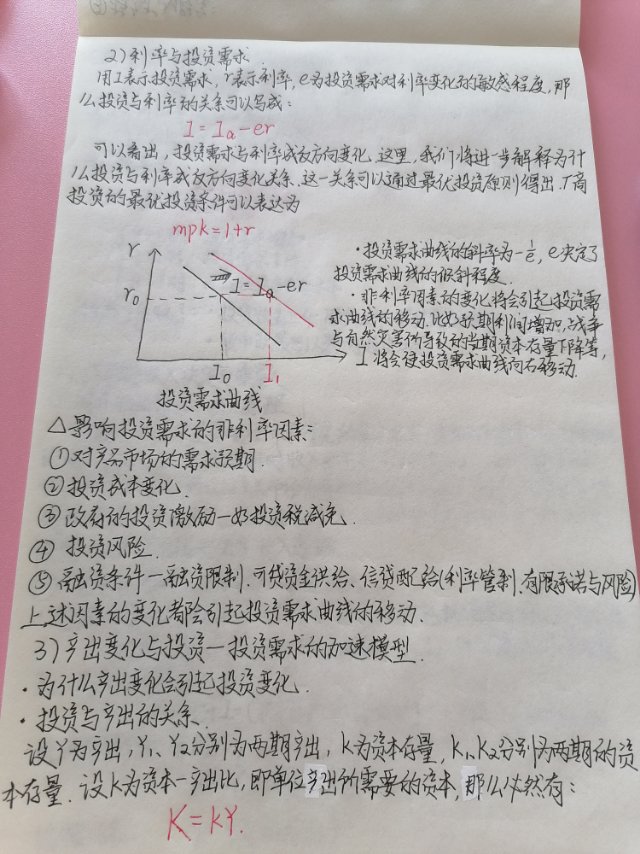 2) 利率与投资需求
用I表示投资需求, r表示利率, e为投资需求对利率变化的敏感程度, 那
么投资与利率的关系可以写成:
I = Ia - er
可以看出, 投资需求与利率成反方向变化. 这里, 我们将进一步解释为什
么投资与利率成反方向变化关系. 这一关系可以通过最优投资原则得出. 厂商
投资的最优投资条件可以表达为
mpk = 1+r
r
r0
I = Ia - er
I0
I1
I
投资需求曲线
·投资需求曲线的斜率为-1/e, e决定了
投资需求曲线的倾斜程度.
·非利率因素的变化将会引起投资需
求曲线的移动. 比如预期利润增加, 战争
与自然灾害所导致的当期资本存量下降等,
将会使投资需求曲线向右移动.
△影响投资需求的非利率因素:
①对产品市场的需求预期.
②投资成本变化.
③政府的投资激励—如投资税减免.
④ 投资风险.
⑤ 融资条件—融资限制. 可贷资金供给、信贷配给(利率管制. 有限承诺与风险)
上述因素的变化都会引起投资需求曲线的移动.
3) 产出变化与投资—投资需求的加速模型.
·为什么产出变化会引起投资变化.
·投资与产出的关系.
设Y为产出, Y1、Y2分别为两期产出, K为资本存量, K1、K2分别为两期的资
本存量. 设k为资本—产出比, 即单位产出所需要的资本, 那么必然有:
K = kY.